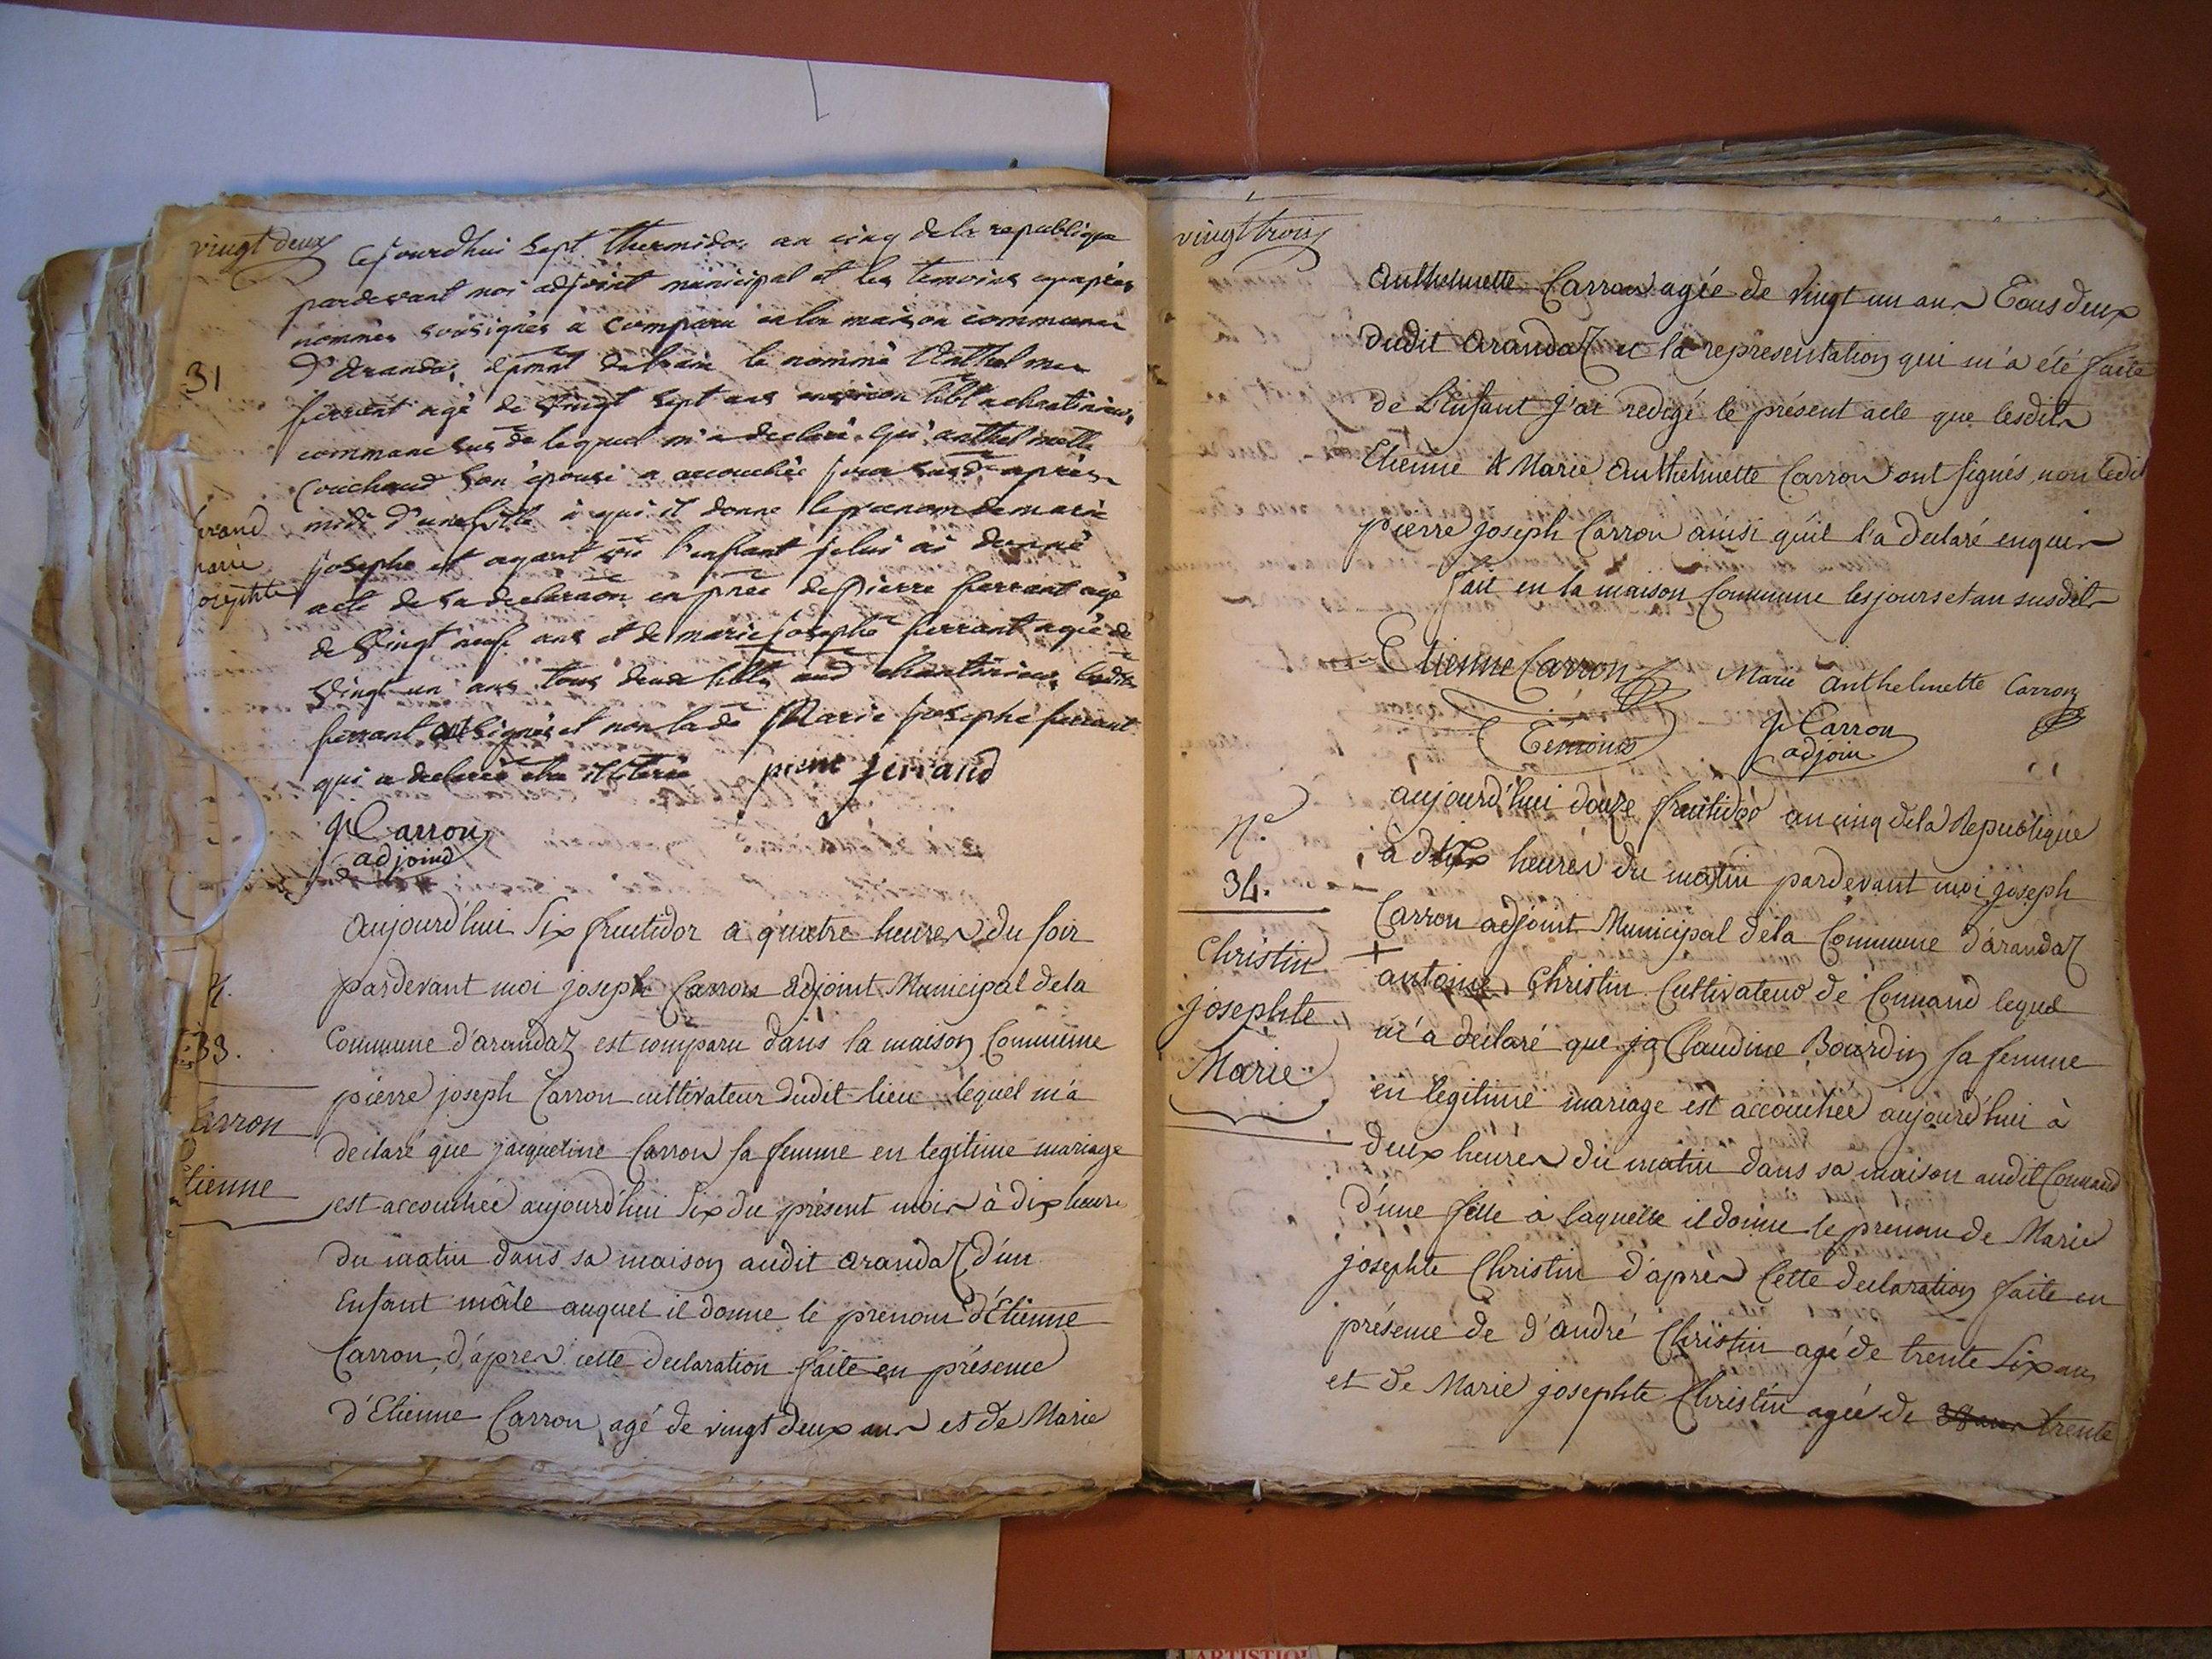 vingt deux
Cejourdhui sept thermidor an cinq dela republique
pardevant moi adjoint municipal et les temoins cy après
nommés soussignés a comparu en la maison commune
31
D'Arandas, dpmnt de l'ain le nommé Anthelme
ferrant agé de vingt sept ans
commune susde lequel m'a declaré qu'anthelmette
Couchoud son épouse a accouchée jour susd. après
midi d'une fille à qui il donne le prenom de marie
josephe et ayant vu l'enfant je lui ai donné
errand
marie
josephte
acte de sa declaraon en prée de Pierre ferrant agé
de vingt neuf ans et de marie josephe ferrant agée de
vingt un ans tous deux
ferrant ont signés et non lade Marie josephe ferrant
qui a declarée etre illiterée pierre ferrand
J Carron
adjoind
aujourd'hui six fructidor a quatre heures du soir
pardevant moi joseph Carron adjoint Municipal dela
N.
33.
Commune d'arandaz est comparu dans la maison Commune
pierre joseph Carron cultivateur dudit lieu lequel m'a
arron
declaré que jacqueline Carron sa femme en legitime mariage
tienne
est accouchée aujourd'hui six du présent mois à dix heures
du matin dans sa maison audit arandaz d'un
Enfant mâle auquel il donne le prenom d'Etienne
Carron, d'après cette declaration faite en présence
d'Etienne Carron agé de vingt deux ans et de Marie
vingt trois
Anthelmette Carron agée de vingt un ans Tous deux
dudit arandaz et la representation qui m'a été faite
de L'Enfant J'ai redigé le présent acte que lesdits
Etienne & Marie Anthelmette Carron ont signés, non ledit
pierre joseph Carron ainsi qu'il l'a declaré enquis
fait en la maison Commune les jours et an susdits
Etienne Carron Marie anthelmette Carron
Témoins J Carron
adjoin
aujourd'hui douze fructidor an cinq dela Republique
N.o
34.
à dix heures du matin pardevant moi joseph
Carron adjoint Municipal dela Commune d'arandaz
Christin
josephte
Marie
+
antoine Christin Cultivateur de Conand lequel
m'a declaré que ja Claudine Bourdin sa femme
en legitime mariage est accouchée aujourd'hui à
deux heures du matin dans sa maison audit Conand
d'une fille à laquelle il donne le prenom de Marie
josephte Christin d'après cette declaration faite en
présence de d'andré Christin agé de trente six ans
et de Marie josephte Christin agée de trente
ARTISTIQ